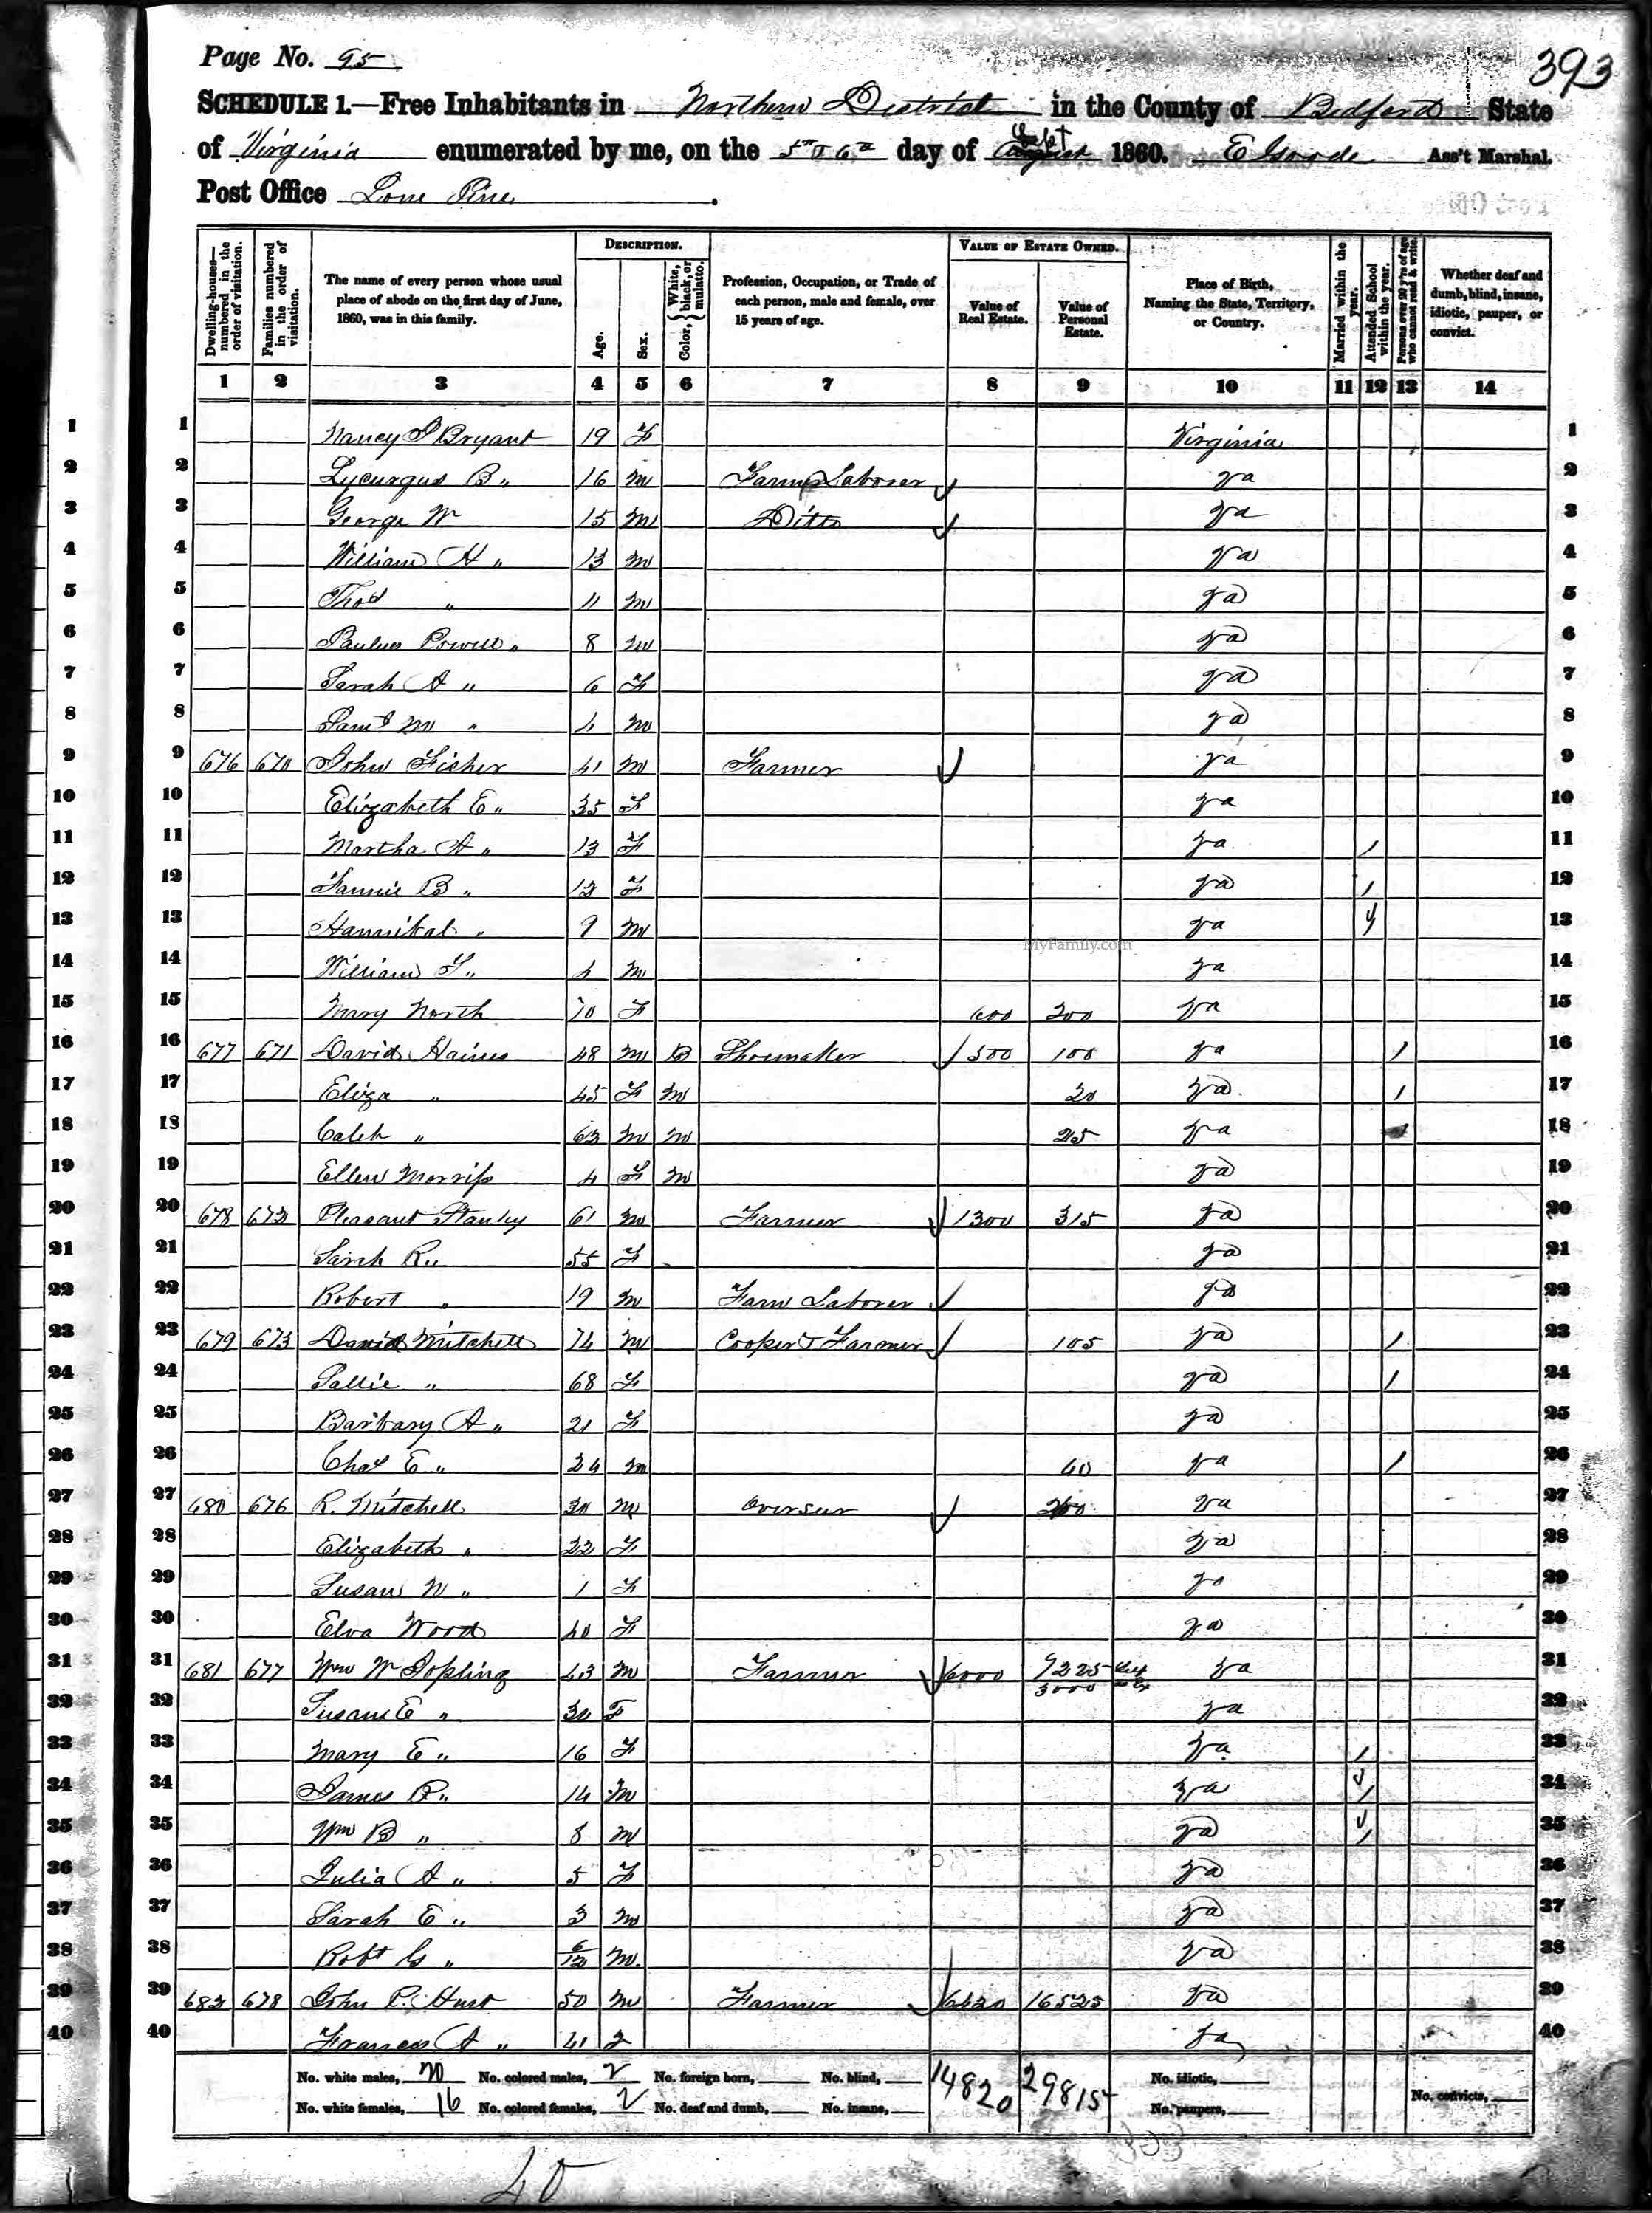 393
Page No. 95
SCHEDULE 1.—Free Inhabitants in Northern District in the County of Bedford State
of Virginia enumerated by me, on the day of Sept 1860. E Goode Ass't Marshal.
Post Office Lone Pine.
Dwelling-houses—numbered in the order of visitation. Families numbered in the order of visitation. The name of every person whose usual place of abode on the first day of June, 1860, was in this family. DESCRIPTION. Age. Sex. Color, {White, black, or mulatto. Profession, Occupation, or Trade of each person, male and female, over 15 years of age. VALUE OF ESTATE OWNED. Value of Real Estate. Value of Personal Estate. Place of Birth, Naming the State, Territory, or Country. Married within the year. Attended School within the year. Persons over 20 y'rs of age who cannot read & write. Whether deaf and dumb, blind, insane, idiotic, pauper, or convict.
1 2 3 4 5 6 7 8 9 10 11 12 13 14
1 1 Nancy Bryant 19 F Virginia 1
2 2 Lycurgus B " 16 m Farm Laborer Va 2
3 3 George W 15 m Ditto Va 3
4 4 William H " 13 m Va 4
5 5 Thos " 11 m Va 5
6 6 Paulus Powell " 8 m Va 6
7 7 Sarah A " 6 F Va 7
8 8 Saml M " 4 m Va 8
9 9 676 670 John Fisher 41 m Farmer Va 9
10 10 Elizabeth E " 35 F Va 10
11 11 Martha A " 13 F Va / 11
12 12 Fannie B " 12 F Va / 12
13 13 Hannibal " 9 m Va 13
14 14 William F " 4 m Va 14
15 15 Mary North 70 F 600 200 Va 15
16 16 677 671 David Haines 48 m B Shoemaker 500 100 Va / 16
17 17 Eliza " 45 F m 20 Va / 17
18 18 Caleb " 62 m m 25 Va 18
19 19 Ellen Morriss 4 F m Va 19
20 20 678 672 Pleasant Stanley 61 m Farmer 1300 315 Va 20
21 21 Sarah R " 55 F Va 21
22 22 Robert " 19 m Farm Laborer Va 22
23 23 679 673 David Mitchell 74 m Cooper & Farmer 105 Va / 23
24 24 Sallie " 68 F Va / 24
25 25 Barbary A " 21 F Va 25
26 26 Chas E " 24 m 60 Va / 26
27 27 680 676 R. Mitchell 30 m Overseer 200 Va 27
28 28 Elizabeth " 22 F Va 28
29 29 Susan W " 1 F Va 29
30 30 Elva Wood 40 F Va 30
31 31 681 677 Wm W Jopling 43 m Farmer 6000 9225 3000 Va 31
32 32 Susan E " 30 F Va 32
33 33 Mary E " 16 F Va / 33
34 34 James R " 14 m Va / 34
35 35 Wm B " 8 m Va / 35
36 36 Julia A " 5 F Va 36
37 37 Sarah E " 3 m Va 37
38 38 Robt G " 6/12 m Va 38
39 39 682 678 John P. Hurt 50 m Farmer 6420 16525 Va 39
40 40 Frances A " 41 F Va 40
No. white males, 20 No. colored males, 2 No. foreign born, No. blind, 14820 29815 No. idiotic,
No. white females, 16 No. colored females, 2 No. deaf and dumb, No. insane, No. paupers, No. convicts,
40
MyFamily.com